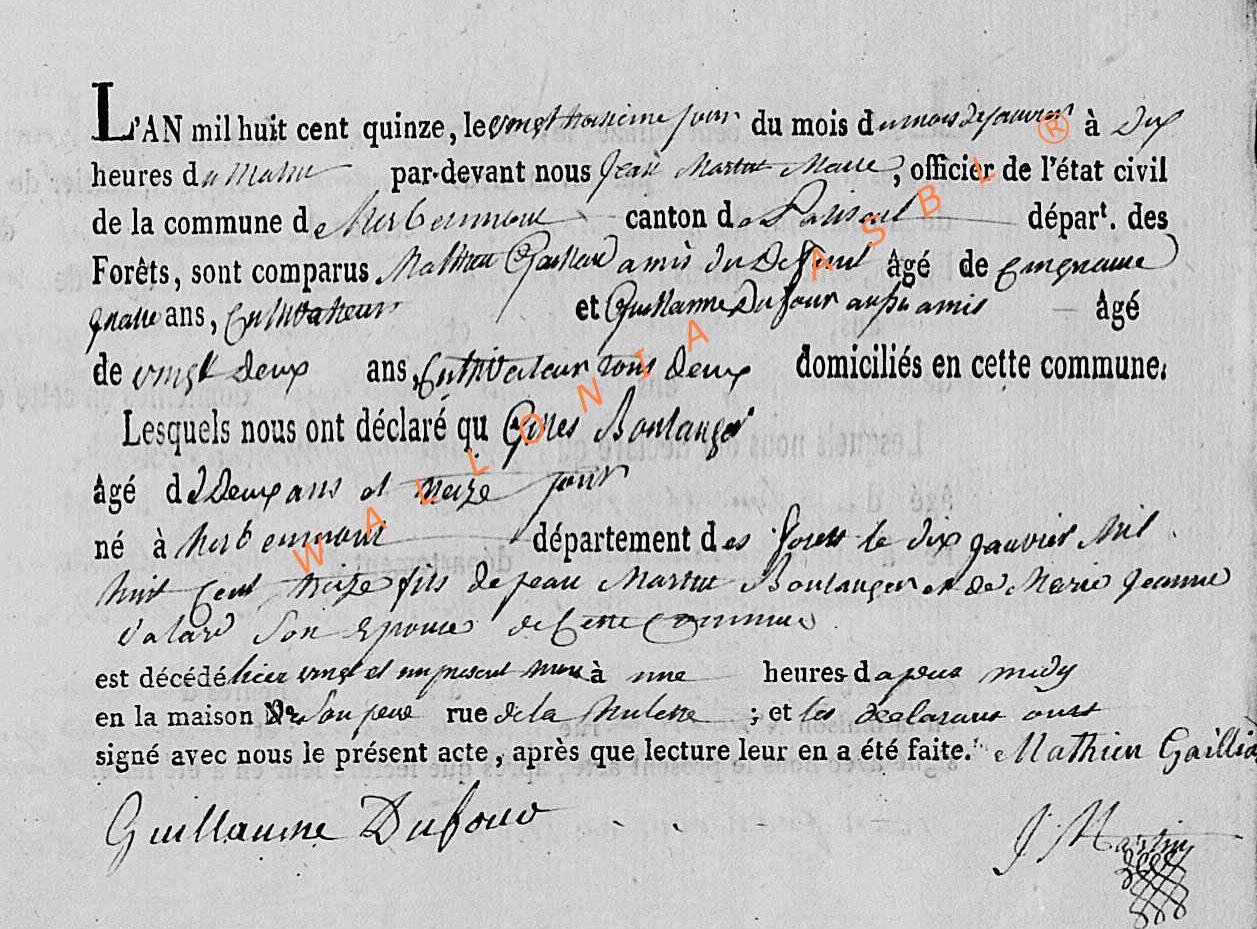 L'AN mil huit cent quinze, le vingt troisieme jour du mois d du mois de janvier à Dix
heures du Matin par-devant nous Jean Martin Maire, officier de l'état civil
de la commune de Herbeumont canton de Paliseul départ. des
Forêts, sont comparus Mathieu Gailliard amis du Defunt âgé de cinquante
quatre ans, Cultivateur et Guillaume Dufour aussi amis âgé
de vingt Deux ans, Cultivateur tous deux domiciliés en cette commune.
Lesquels nous ont déclaré qu Gilles Boulanger
âgé d Deux ans et treize jour
né à Herbeumont département des forets le dix janvier Mil
huit Cent treize fils de jean Martin Boulanger et de Marie Jeanne
son Epouse de Cette Commune
est décédé hier vingt et un à une heures d apres midy
en la maison de Son pere rue de la ; et les declarans ont
signé avec nous le présent acte, après que lecture leur en a été faite. Mathieu Gaillia
Guillaume Dufour
J Martin
WALLONIA ASBL ®